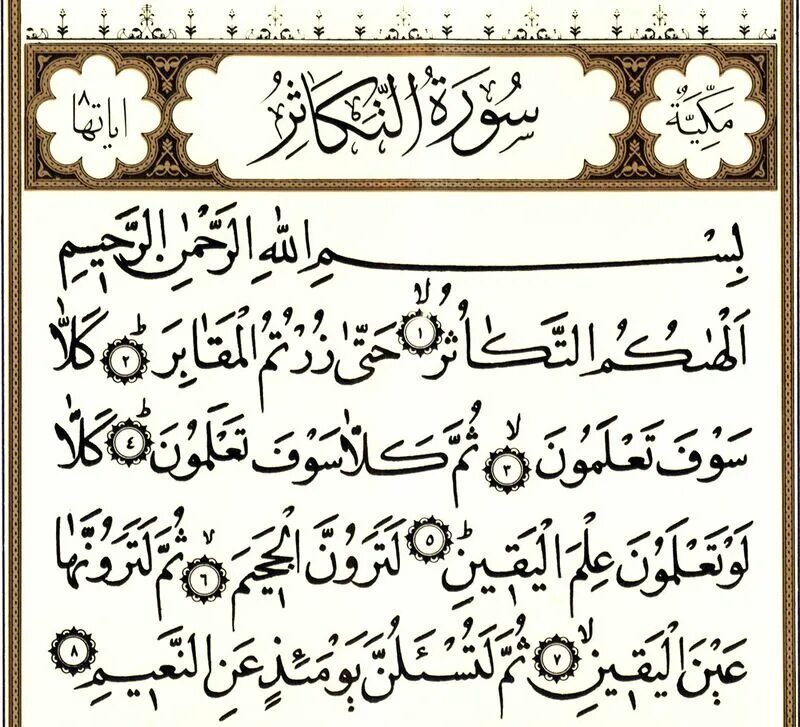 مَكِّيَّةٌ سُورَةُ التَّكَاثُرِ اٰيَاتُهَا ٨
بِسْمِ اللّٰهِ الرَّحْمٰنِ الرَّحِيمِ
اَلْهٰيكُمُ التَّكَاثُرُ ﴿١﴾ۙ حَتّٰى زُرْتُمُ الْمَقَابِرَ ﴿٢﴾ؕ كَلَّا
سَوْفَ تَعْلَمُونَ ﴿٣﴾ۙ ثُمَّ كَلَّا سَوْفَ تَعْلَمُونَ ﴿٤﴾ؕ كَلَّا
لَوْ تَعْلَمُونَ عِلْمَ الْيَقِينِؕ ﴿٥﴾ لَتَرَوُنَّ الْجَحِيمَ ﴿٦﴾ۙ ثُمَّ لَتَرَوُنَّهَا
عَيْنَ الْيَقِينِۙ ﴿٧﴾ ثُمَّ لَتُسْـَٔلُنَّ يَوْمَئِذٍ عَنِ النَّعِيمِ ﴿٨﴾